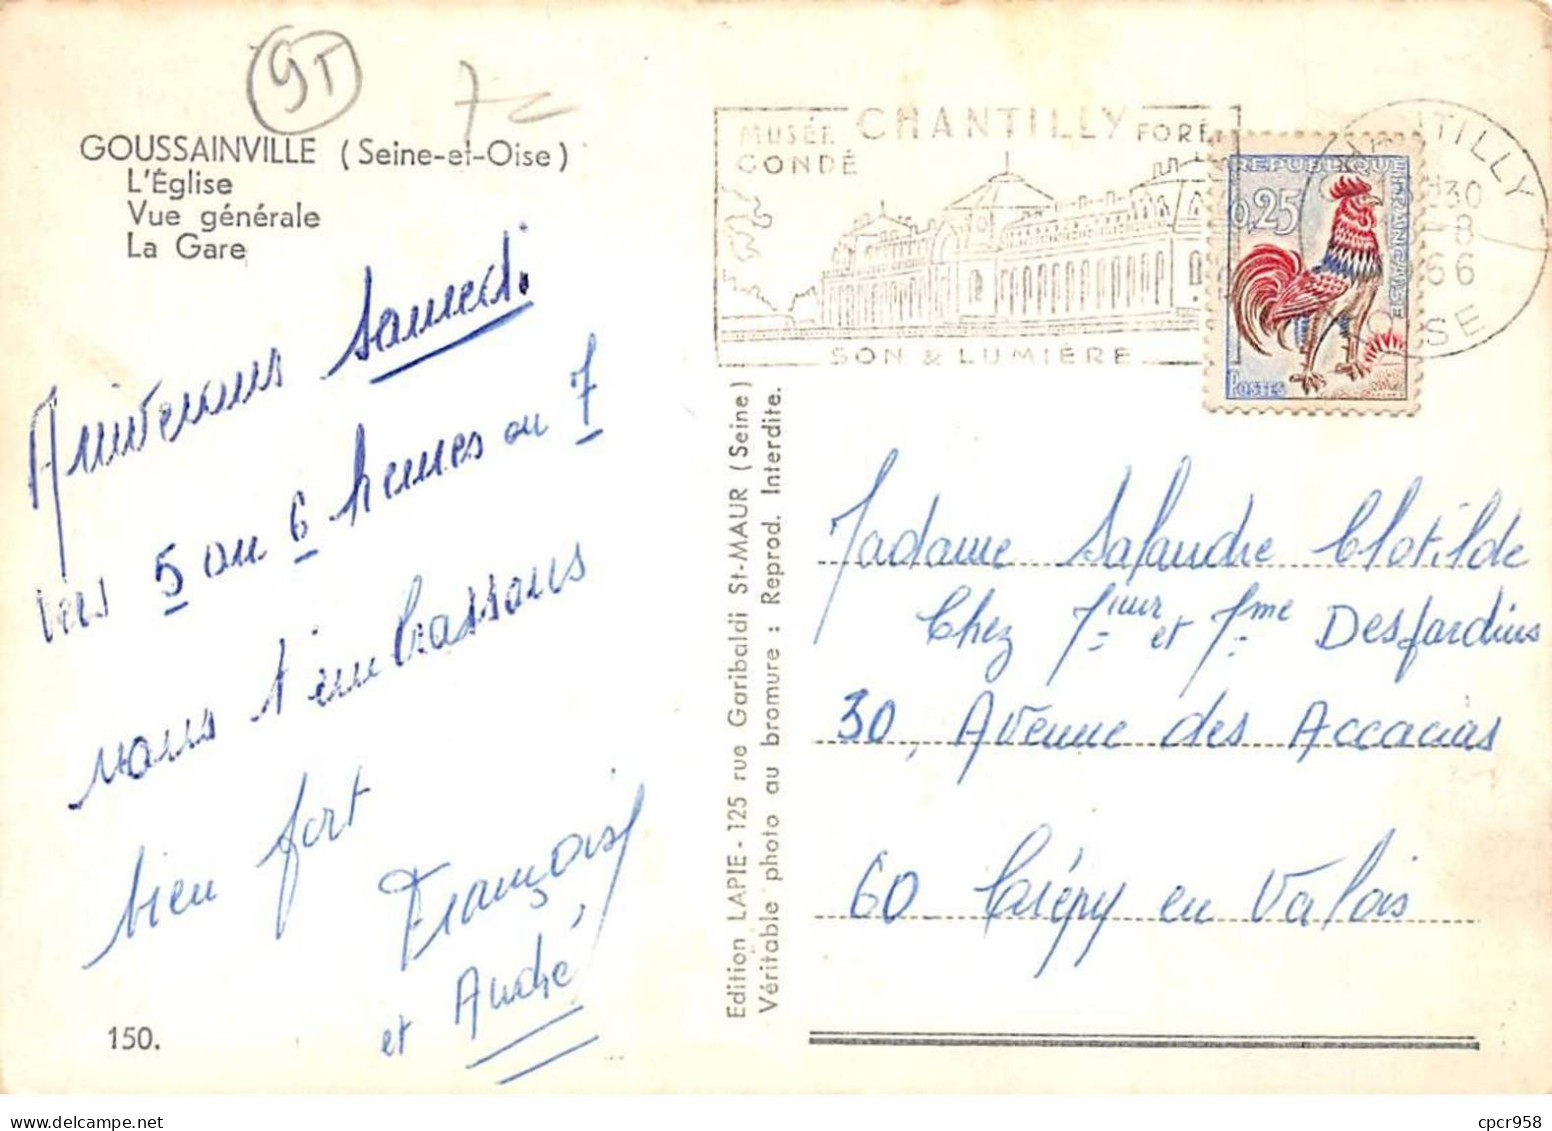 95
GOUSSAINVILLE (Seine-et-Oise)
L'Église
Vue générale
La Gare
Arriverons Samedi
vers 5 ou 6 heures ou 7
nous t'embrassons
bien fort
Françoise
et André
150.
Edition LAPIE - 125 rue Garibaldi St-MAUR (Seine)
Véritable photo au bromure : Reprod. Interdite.
MUSÉE CHANTILLY FORÊ
CONDÉ
SON & LUMIÈRE
REPUBLIQUE
FRANÇAISE
0,25
POSTES
CHANTILLY
30
-8
66
OISE
Madame Salandre Clotilde
Chez Mr et Mme Desjardins
30, Avenue des Accacias
60 Crépy en Valois
cpcr958